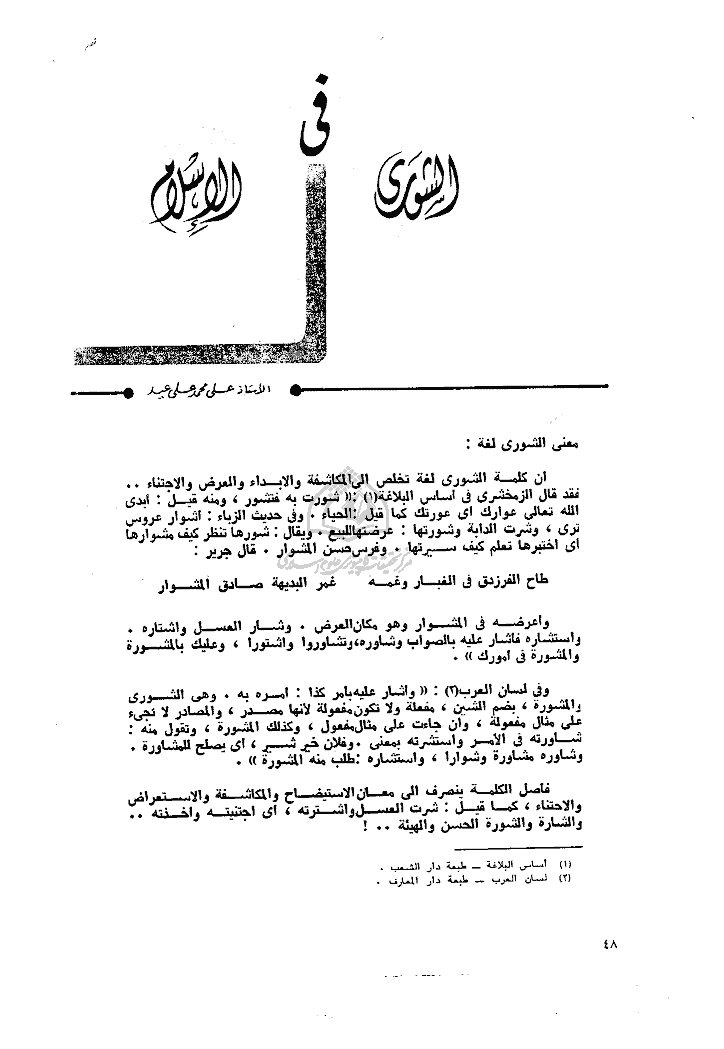 الشورى
فى
الإسلام
الأستاذ على محمد على عيد
معنى الشورى لغة :
ان كلمــة الشورى لغة تخلص الى المكاشفة والابداء والعرض والاجتناء ..
فقد قال الزمخشرى فى اساس البلاغة(١) : « شورت به فتشور ، ومنه قيــل : أبدى
الله تعالى عوارك اى عورتك كما قيل : الحياء . وفى حديث الزباء : اشوار عروس
ترى ، وشرت الدابة وشورتها : عرضتها للبيع . ويقال : شورها تنظر كيف مشوارها
اى اختبرها تعلم كيف ســيرتها . وفرس حسن المشوار . قال جرير :
طاح الفرزدق فى الغبــار وغمــه غمر البديهة صــادق المشــوار
واعرضــه فى المشــوار وهو مكان العرض . وشــار العســل واشتاره .
واستشاره فأشار عليه بالصواب وشاوره، وتشاوروا واشتورا ، وعليك بالمشــورة
والمشورة فى أمورك » .
وفى لسان العرب(٢) : « واشار عليه بامر كذا : امــره به . وهى الشــورى
والمشورة ، بضم الشين ، مفعلة ولا تكون مفعولة لأنها مصــدر ، والمصادر لا تجىء
على مثال مفعولة ، وان جاءت على مثال مفعول ، وكذلك المشورة ، وتقول منه :
شــاورته فى الأمــر واستشرته بمعنى . وفلان خير شــير ، اى يصلح للمشاورة .
وشاوره مشاورة وشوارا ، واستشاره : طلب منه المشورة » .
فاصل الكلمــة ينصرف الى معــان الاستيضــاح والمكاشــفة والاســتعراض
والاجتناء ، كمــا قيــل : شرت العســل واشــترته ، اى اجتنيتــه واخــذته ..
والشارة والشورة الحسن والهيئة .. !
(١) أساس البلاغة ــ طبعة دار الشعب .
(٢) لسان العرب ــ طبعة دار المعارف .
٤٨